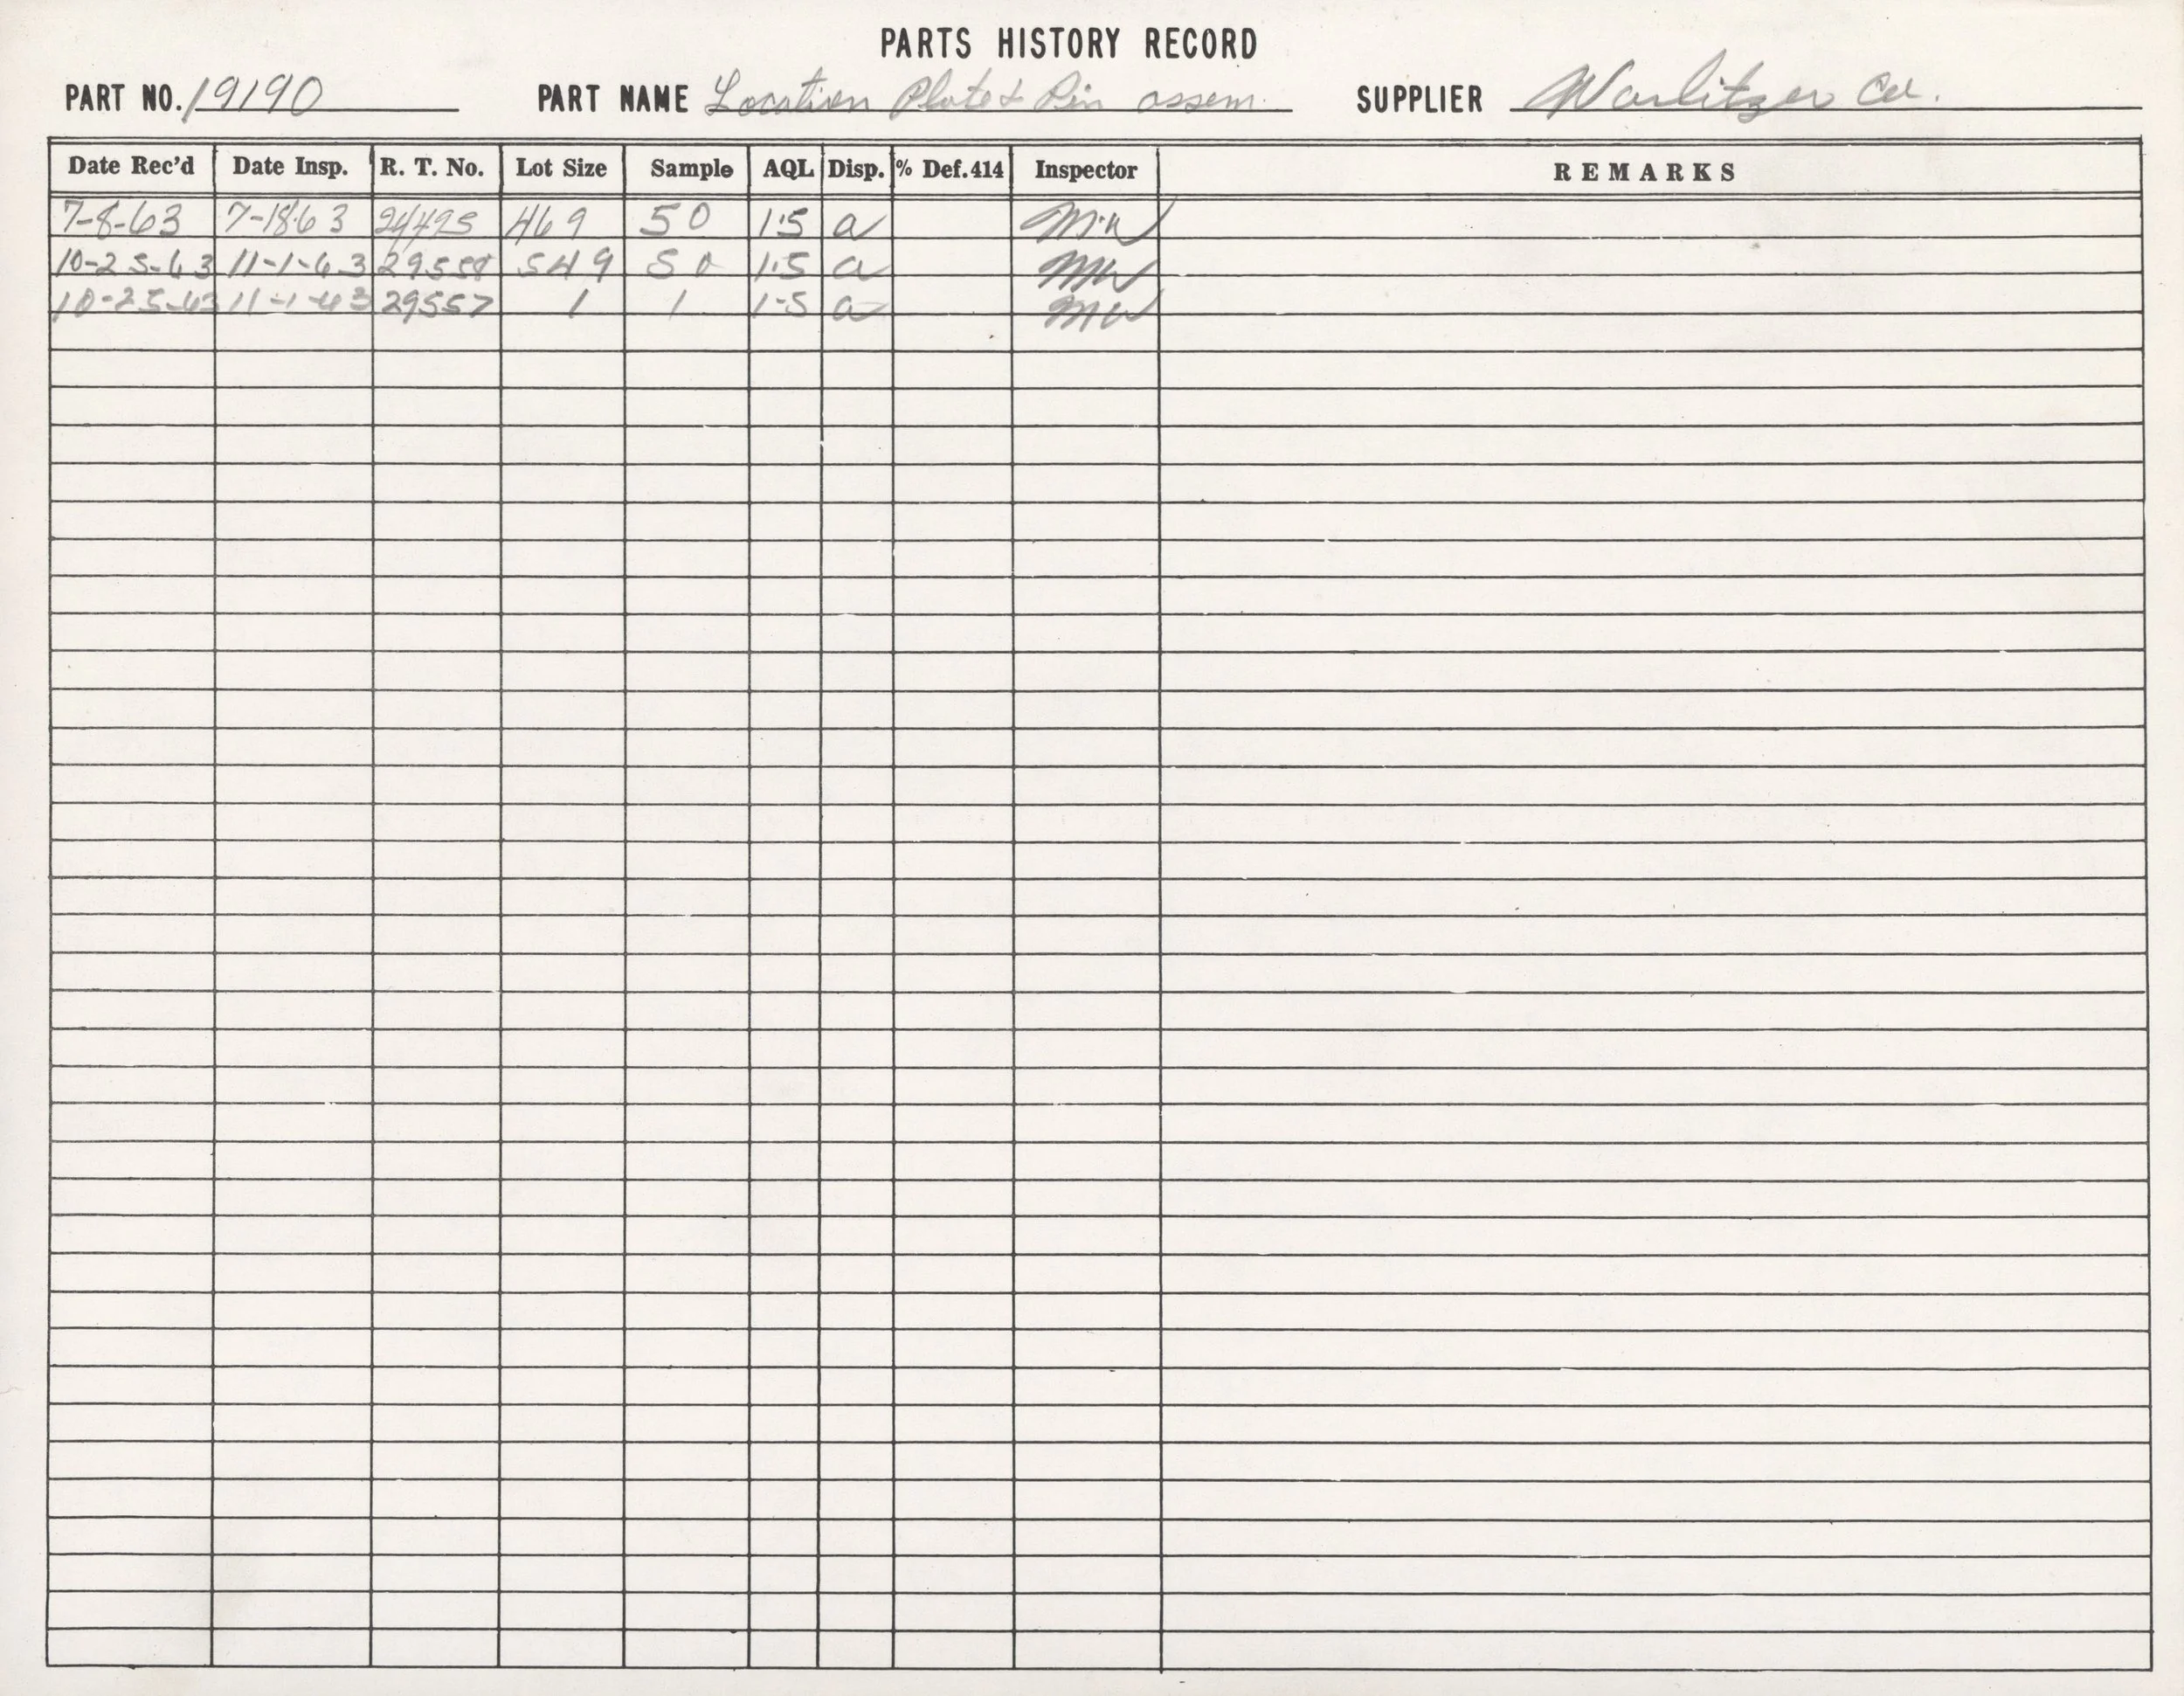 PARTS HISTORY RECORD
PART NO. 19190 PART NAME Location Plate & Pin assem. SUPPLIER Warlitzer Co.
Date Rec'd Date Insp. R. T. No. Lot Size Sample AQL Disp. % Def. 414 Inspector REMARKS
7-8-63 7-18-63 24495 469 50 1.5 a MW
10-25-63 11-1-63 29558 549 50 1.5 a MW
10-25-63 11-1-63 29557 1 1 1-5 a MW